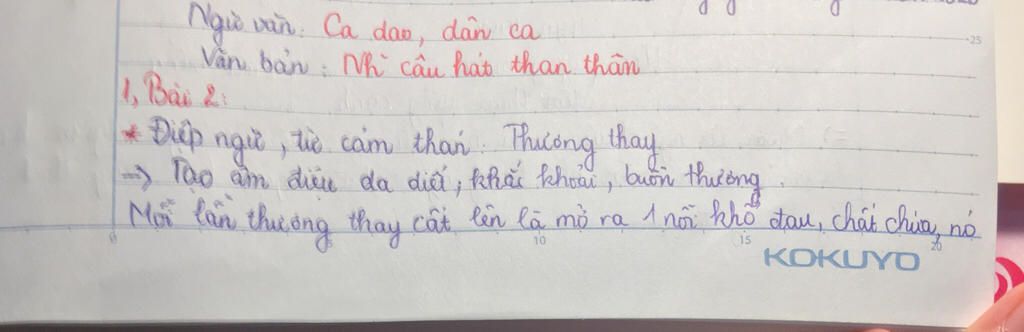 Ngữ văn: Ca dao, dân ca
25
Văn bản: Nhĩ câu hát than thân
1, Bài 2:
* Điệp ngữ, từ cảm thán: Thương thay
=> Tạo âm điệu da diết, khắc khoải, buồn thương.
Mỗi lần thương thay cất lên là mở ra 1 nỗi khổ đau, chất chứa, nó
10
15
20
KOKUYO